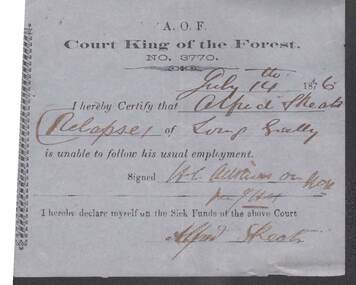 A. O. F.
Court King of the Forest.
NO. 3770.
July 14th 1876
I hereby Certify that Alfred Skeats
(Relapse) of Long Gully
is unable to follow his usual employment.
Signed
I hereby declare myself on the Sick Funds of the above Court
Alfred Skeats